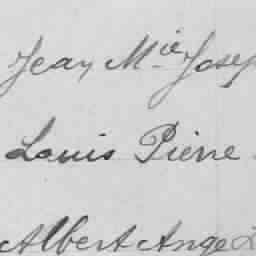 Jean Mie Josep
Louis Pierre
Albert Ange L